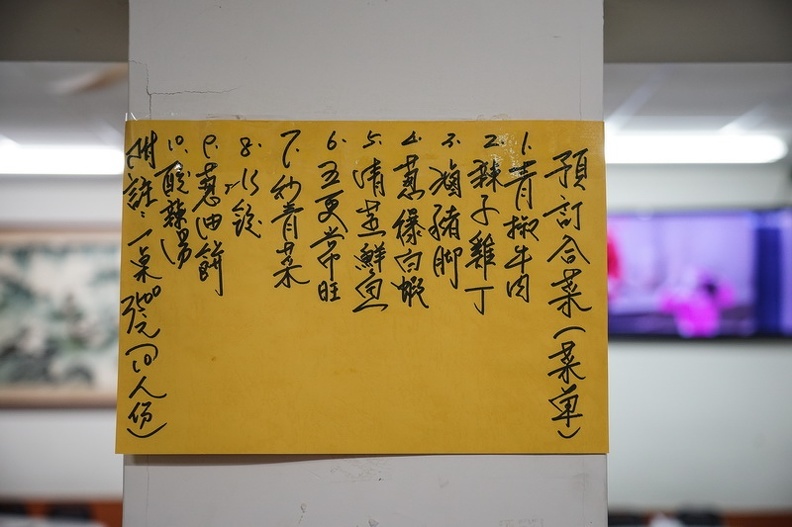 預訂合菜(菜單)
1. 青椒牛肉
2. 辣子雞丁
3. 滷豬腳
4. 蔥爆白蝦
5. 清蒸鮮魚
6. 五更常旺
7. 炒青菜
8.
9. 蔥油餅
10. 酸辣湯
附註:一桌3500元(10人份)